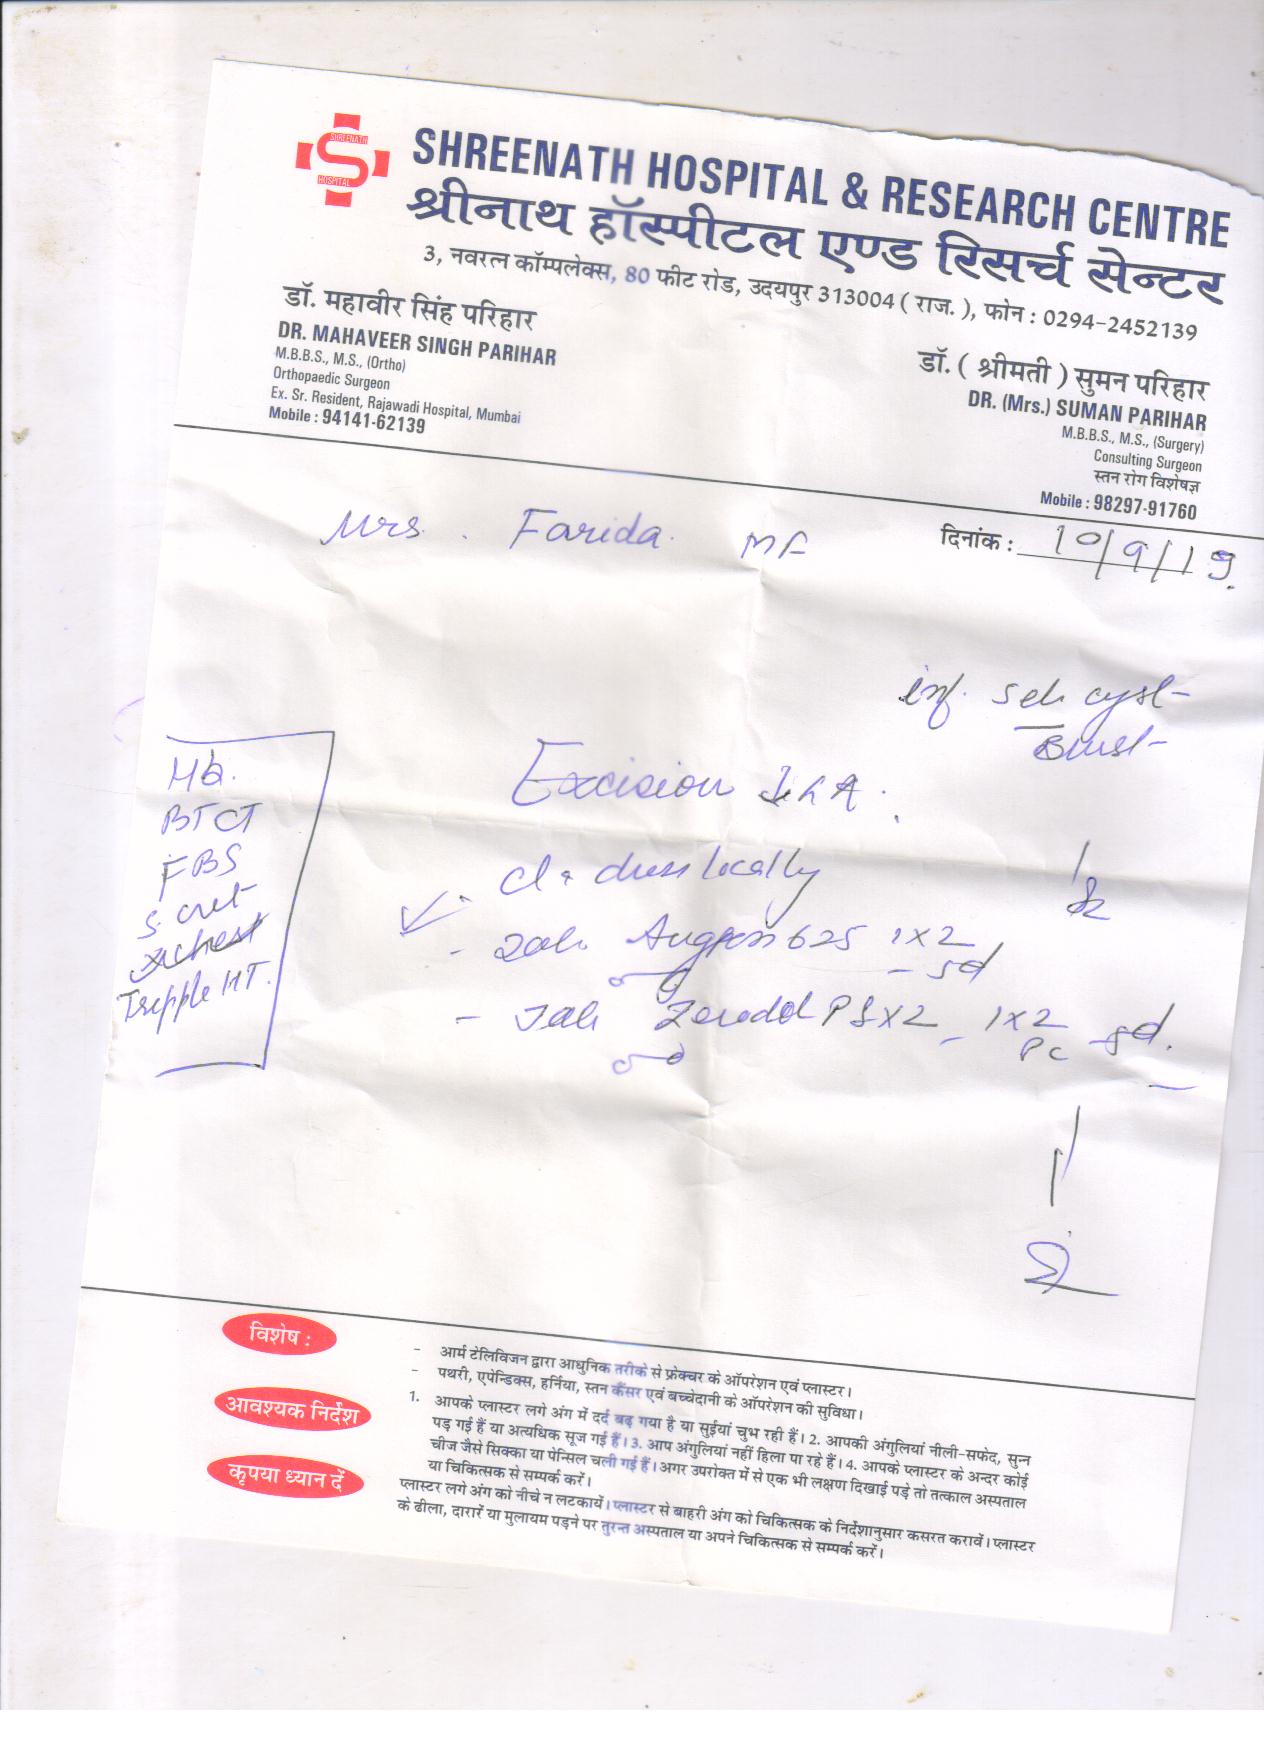 SHREENATH
HOSPITAL
SHREENATH HOSPITAL & RESEARCH CENTRE
श्रीनाथ हॉस्पीटल एण्ड रिसर्च सेन्टर
3, नवरत्न कॉम्पलेक्स, 80 फीट रोड, उदयपुर 313004 ( राज. ), फोन : 0294-2452139
डॉ. महावीर सिंह परिहार
DR. MAHAVEER SINGH PARIHAR
M.B.B.S., M.S., (Ortho)
Orthopaedic Surgeon
Ex. Sr. Resident, Rajawadi Hospital, Mumbai
Mobile : 94141-62139
डॉ. ( श्रीमती ) सुमन परिहार
DR. (Mrs.) SUMAN PARIHAR
M.B.B.S., M.S., (Surgery)
Consulting Surgeon
स्तन रोग विशेषज्ञ
Mobile : 98297-91760
Mrs. Farida
दिनांक : 10/9/19
inf. seb cyst
Burst
Hb.
BTCT
FBS
S. creat
Tripple HT.
Excision LA.
dress locally
- Tab. 625 1x2
- 5d
- Tab 1x2 - 5d.
PC
विशेष :
- आर्म टेलिविजन द्वारा आधुनिक तरीके से फ्रेक्चर के ऑपरेशन एवं प्लास्टर।
- पथरी, एपेन्डिक्स, हर्निया, स्तन कैंसर एवं बच्चेदानी के ऑपरेशन की सुविधा।
आवश्यक निर्देश
1. आपके प्लास्टर लगे अंग में दर्द बढ़ गया है या सुईयां चुभ रही हैं। 2. आपकी अंगुलियां नीली-सफेद, सुन्न
पड़ गई हैं या अत्यधिक सूज गई हैं। 3. आप अंगुलियां नहीं हिला पा रहे हैं। 4. आपके प्लास्टर के अन्दर कोई
चीज जैसे सिक्का या पेन्सिल चली गई हैं। अगर उपरोक्त में से एक भी लक्षण दिखाई पड़े तो तत्काल अस्पताल
या चिकित्सक से सम्पर्क करें।
कृपया ध्यान दें
प्लास्टर लगे अंग को नीचे न लटकायें। प्लास्टर से बाहरी अंग को चिकित्सक के निर्देशानुसार कसरत करावें। प्लास्टर
के ढीला, दारारें या मुलायम पड़ने पर तुरन्त अस्पताल या अपने चिकित्सक से सम्पर्क करें।